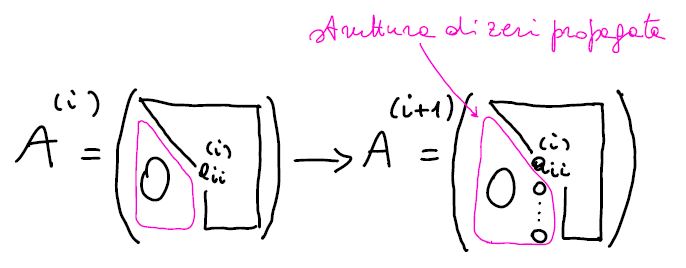 struttura di zeri propagata
A^(i) = ( 0 a_ii^(i) ) → A^(i+1) = ( 0 a_ii^(i) 0 ⋮ 0 )